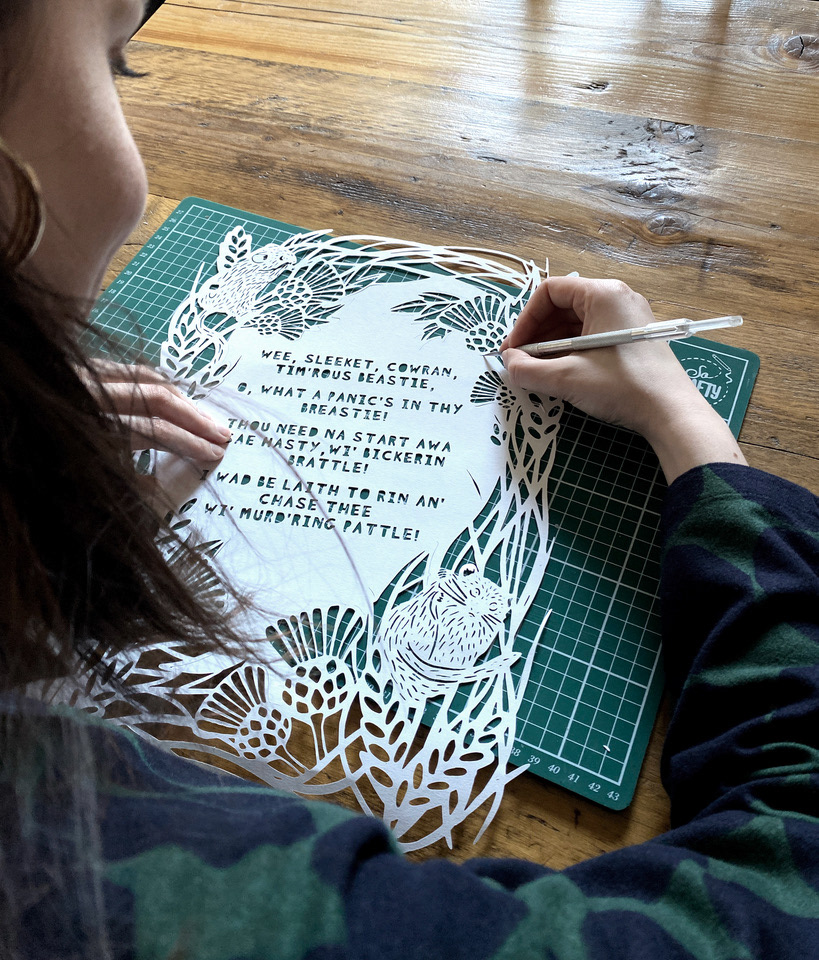 WEE, SLEEKET, COWRAN,
TIM'ROUS BEASTIE,
O, WHAT A PANIC'S IN THY
BREASTIE!
THOU NEED NA START AWA
SAE HASTY, WI' BICKERIN
BRATTLE!
I WAD BE LAITH TO RIN AN'
CHASE THEE
WI' MURD'RING PATTLE!
So
CRAFTY
38 39 40 41 42 43